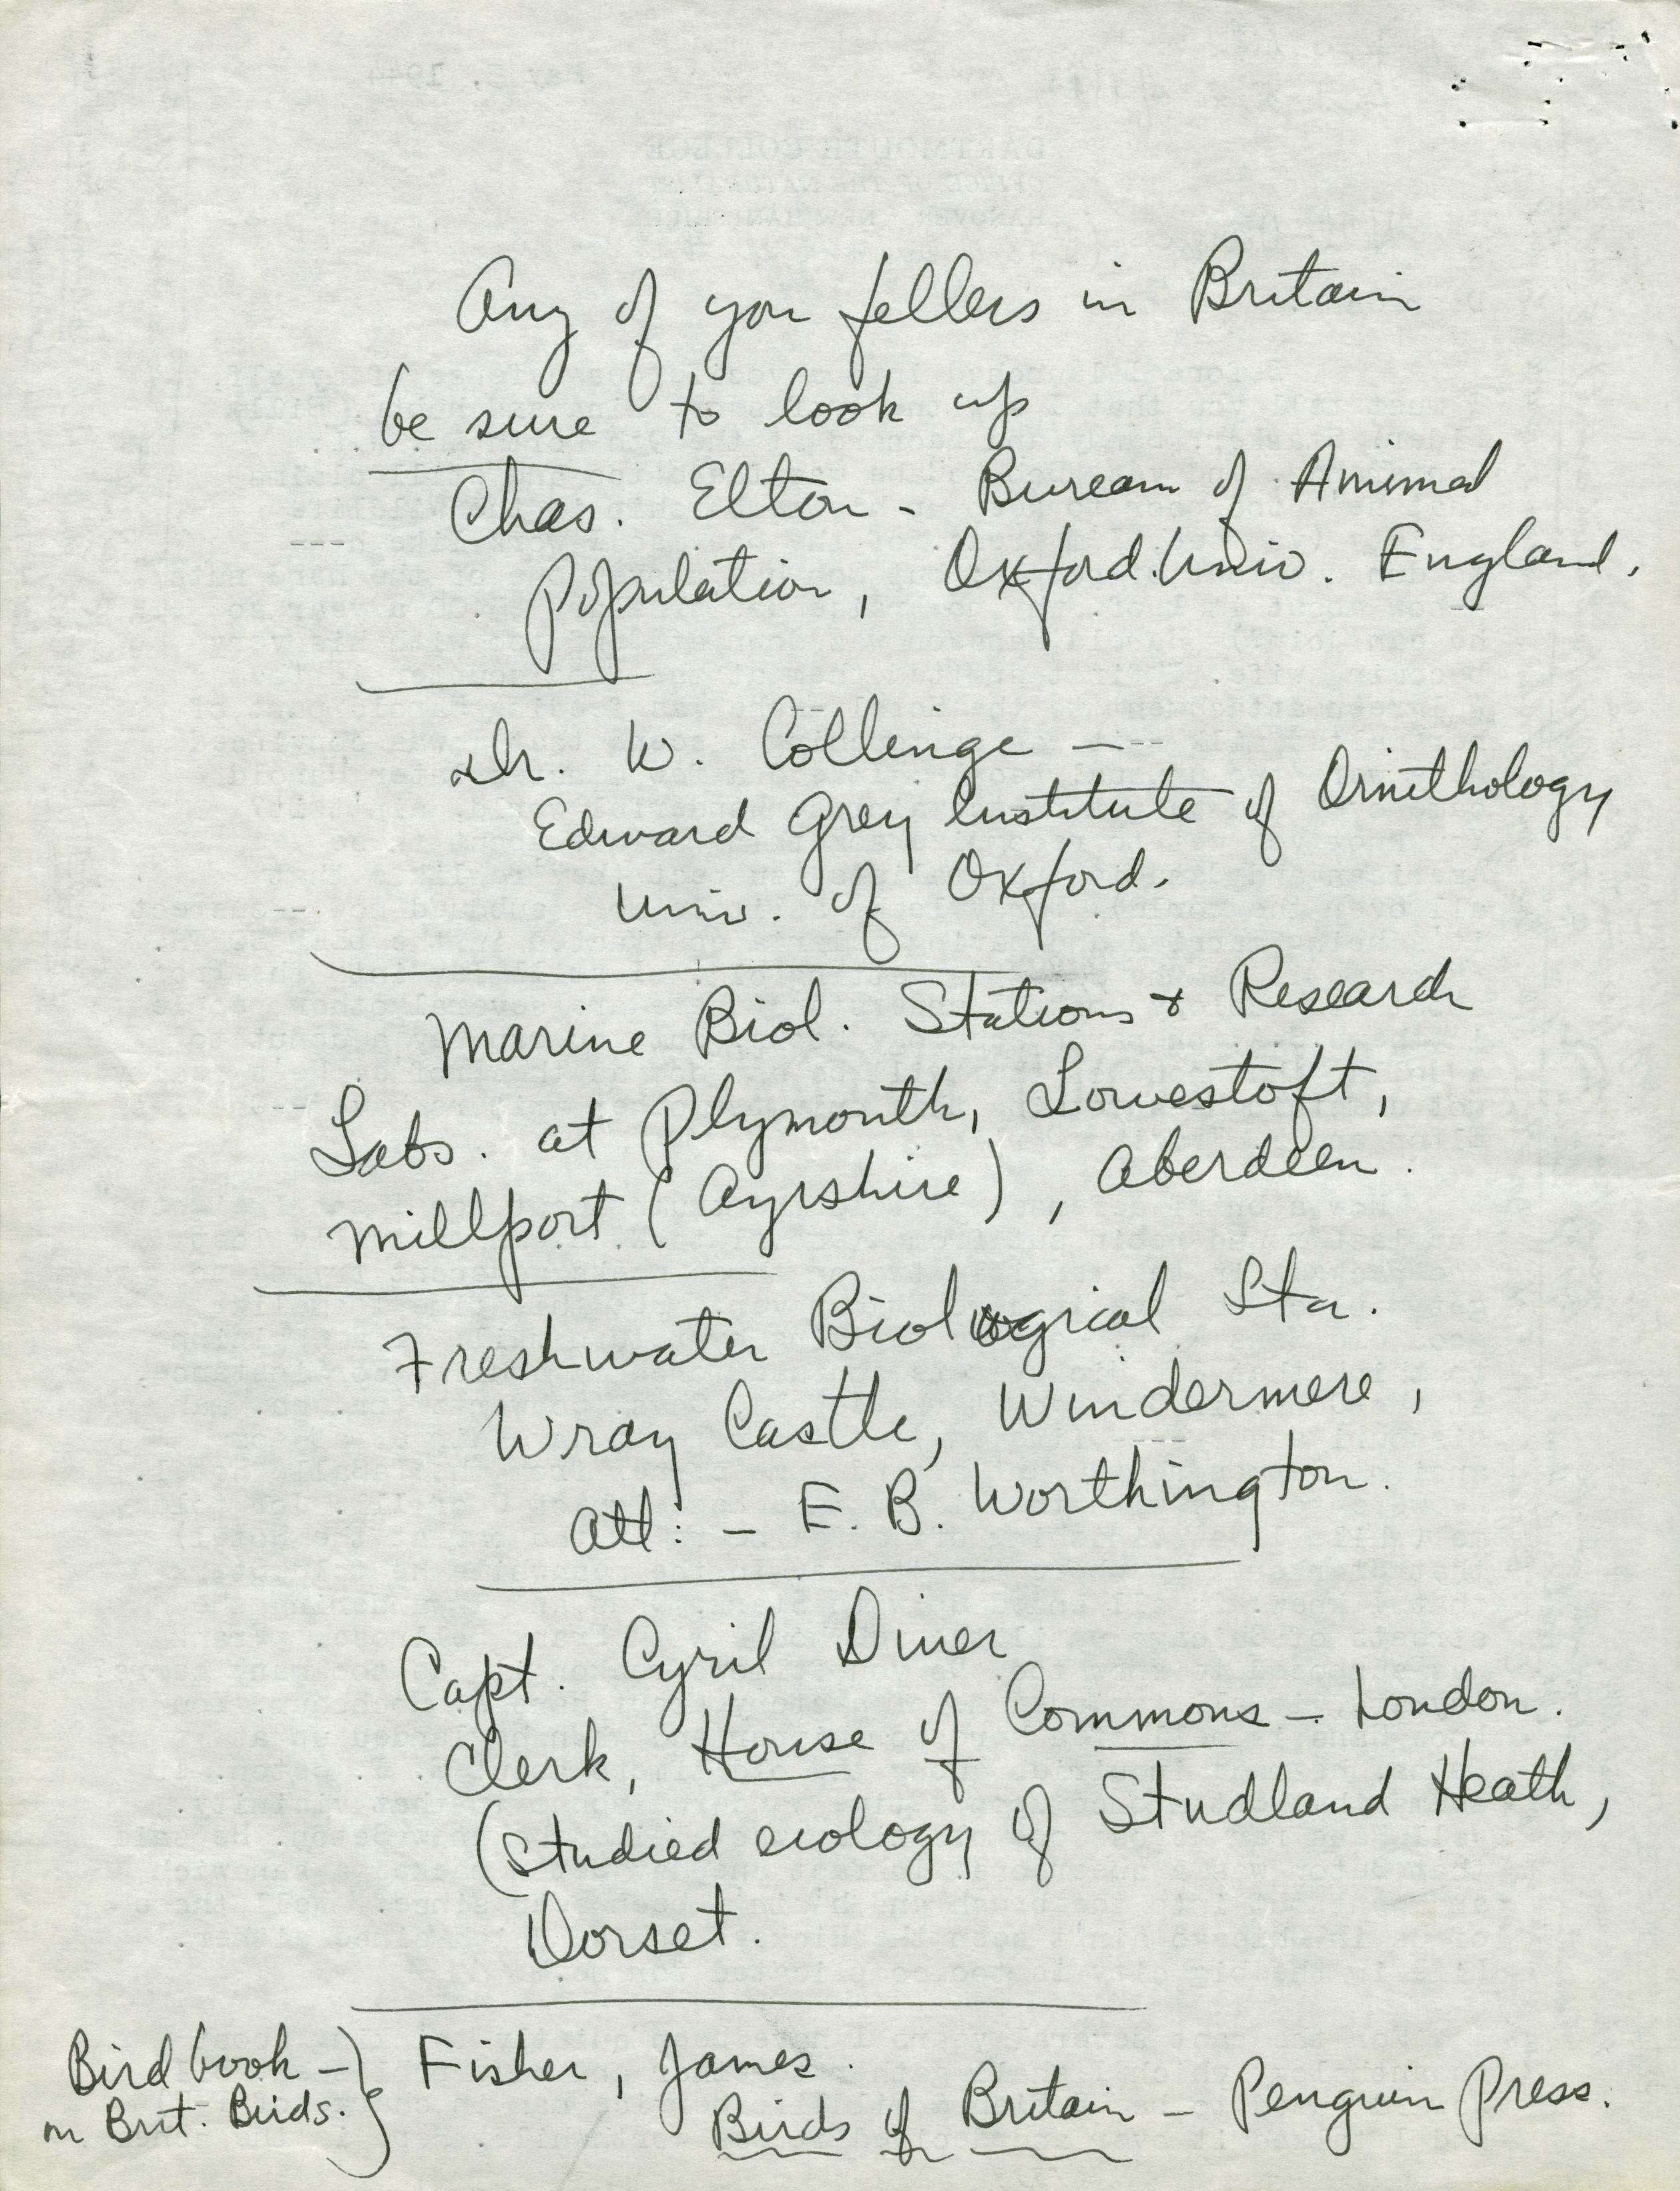 Any of you fellers in Britain
be sure to look up
Chas. Elton - Bureau of Animal
Population, Oxford Univ. England.
Dr. W. Collinge -
Edward Grey Institute of Ornithology
Univ. of Oxford.
Marine Biol. Stations & Research
Labs. at Plymouth, Lowestoft,
Millport (Ayrshire), Aberdeen.
Freshwater Biological Sta.
Wray Castle, Windermere,
Att: - E. B. Worthington.
Capt. Cyril Diver
Clerk, House of Commons - London.
(studied ecology of Studland Heath,
Dorset.
Bird book -
on Brit. Birds. } Fisher, James.
Birds of Britain - Penguin Press.